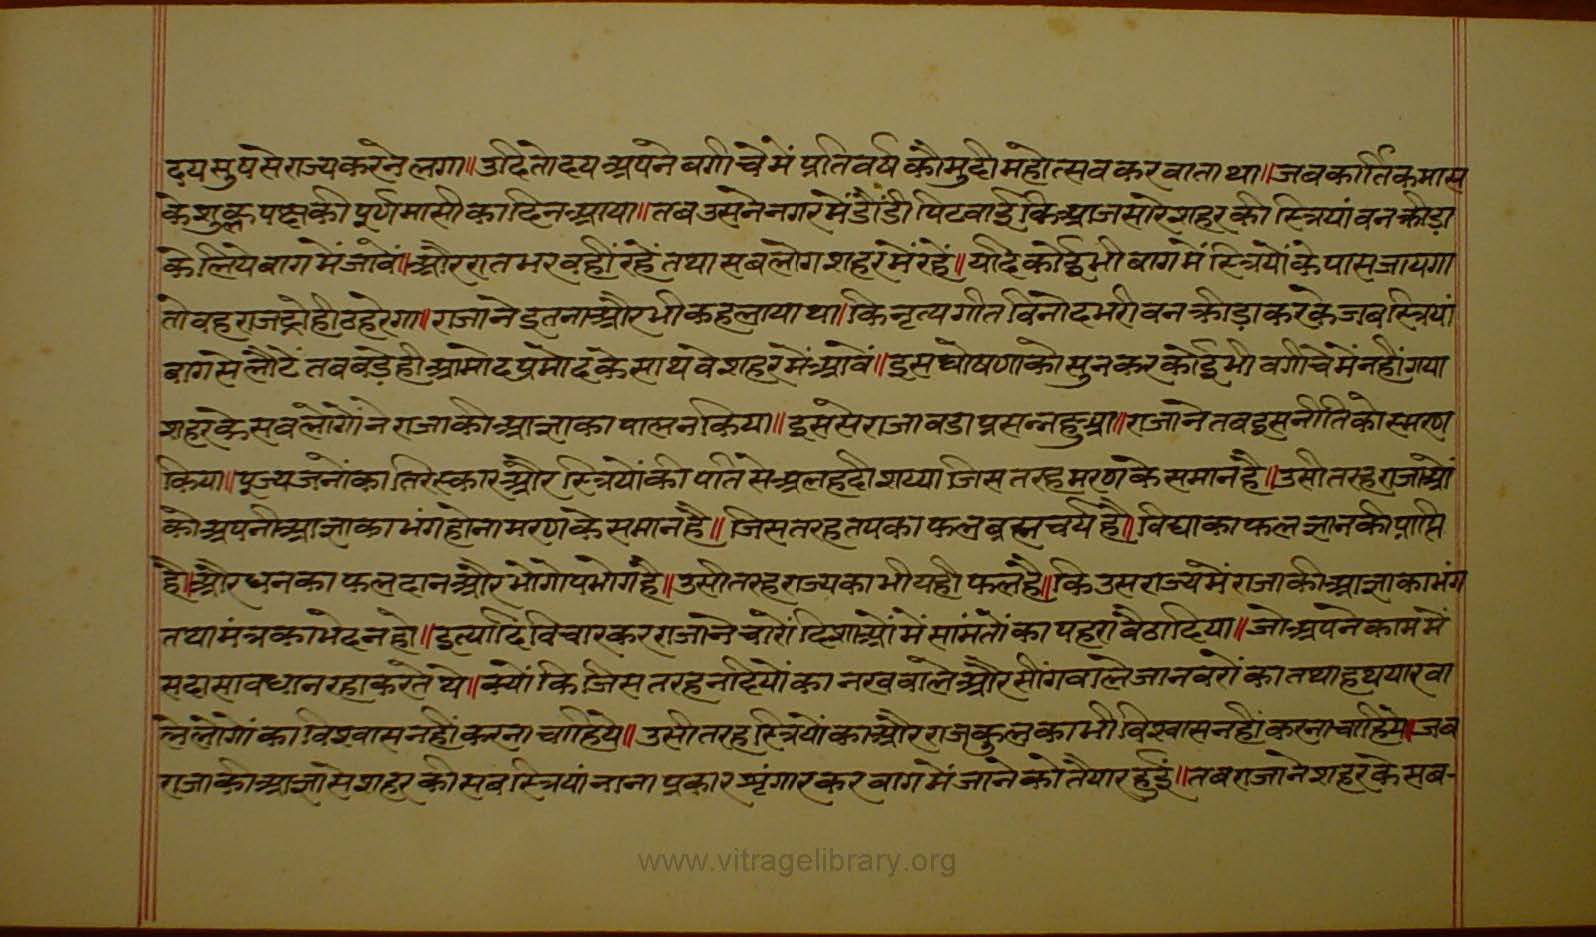 दय सुष से राज्य करने लगा॥ उदितोदय अपने बगीचे में प्रतिवर्ष कौमुदी महोत्सव करवाता था॥ जब कार्तिक मास
के शुक्ल पक्ष की पूर्णमासी का दिन आया॥ तब उसने नगर में डौंडी पिटवाई कि आज सारे शहर की स्त्रियां वन क्रीड़ा
के लिये बाग में जावें॥ और रात भर वहीं रहें तथा सब लोग शहर में रहें॥ यदि कोई भी बाग में स्त्रियों के पास जायगा
तो वह राजद्रोही ठहरेगा॥ राजा ने इतना और भी कहलाया था। कि नृत्य गीत विनोद भरी वन क्रीड़ा करके जब स्त्रियां
बाग से लौटें तब बड़े ही आमोद प्रमोद के साथ वे शहर में आवें॥ इस घोषणा को सुनकर कोई भी बगीचे में नहीं गया
शहर के सब लोगों ने राजा की आज्ञा का पालन किया॥ इस से राजा बडा प्रसन्न हुआ॥ राजा ने तब इस नीति को स्मरण
किया॥ पूज्य जनों का तिरस्कार और स्त्रियों की पति से अलहदी शय्या जिस तरह मरण के समान है॥ उसी तरह राजाओं
को अपनी आज्ञा का भंग होना मरण के समान है॥ जिस तरह तप का फल ब्रह्मचर्य है॥ विद्या का फल ज्ञान की प्राप्ति
है॥ और धन का फल दान और भोगोपभोग है॥ उसी तरह राज्य का भी यही फल है॥ कि उस राज्य में राजा की आज्ञा का भंग
तथा मंत्र का भेद न हो॥ इत्यादि विचार कर राजा ने चारों दिशाओं में सामंतों का पहरा बैठा दिया॥ जो अपने काम में
सदा सावधान रहा करते थे॥ क्यों कि जिस तरह नदियों का नख वाले और सींग वाले जानवरों का तथा हथयार वा
ले लोगों का विश्वास नहीं करना चाहिये॥ उसी तरह स्त्रियों का और राजकुल का भी विश्वास नहीं करना चाहिये॥ जब
राजा की आज्ञा से शहर की सब स्त्रियां नाना प्रकार शृंगार कर बाग में जाने को तैयार हुईं॥ तब राजा ने शहर के सब-
www.vitragelibrary.org